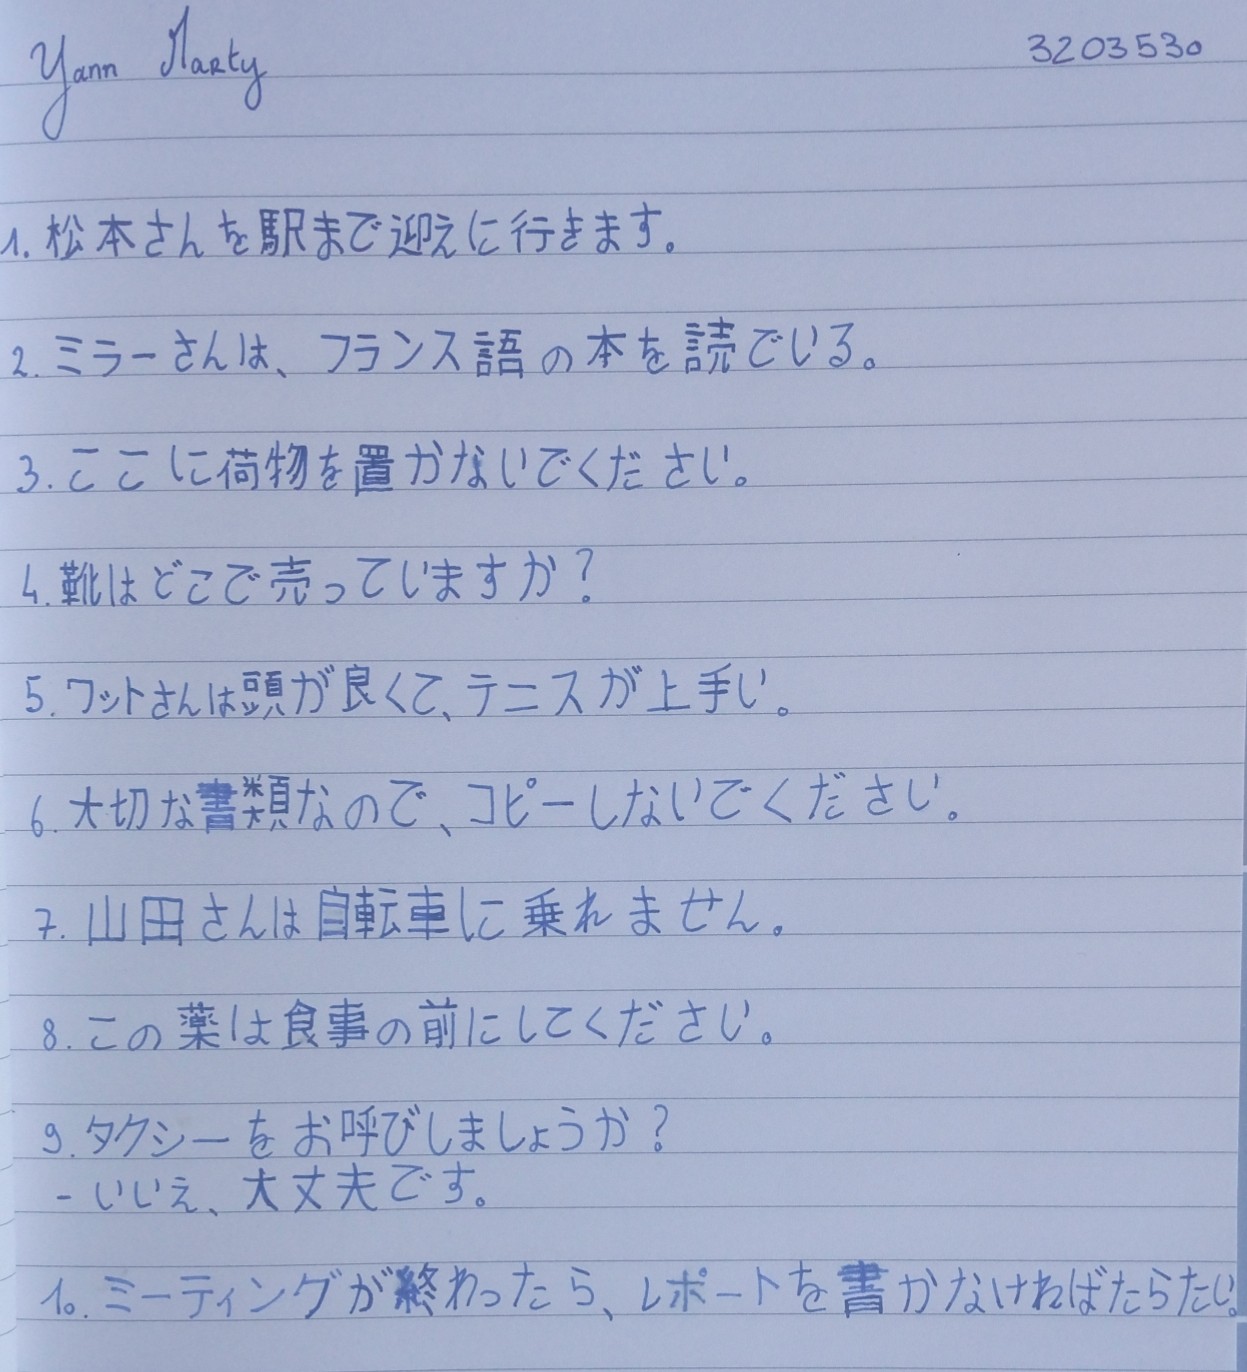 Yann Marty 3203530
1. 松本さんを駅まで迎えに行きます。
2. ミラーさんは、フランス語の本を読でいる。
3. ここに荷物を置かないでください。
4. 靴はどこで売っていますか？
5. ワットさんは頭が良くて、テニスが上手い。
6. 大切な書類なので、コピーしないでください。
7. 山田さんは自転車に乗れません。
8. この薬は食事の前にしてください。
9. タクシーをお呼びしましょうか？
- いいえ、大丈夫です。
10. ミーティングが終わったら、レポートを書かなければたらたい。